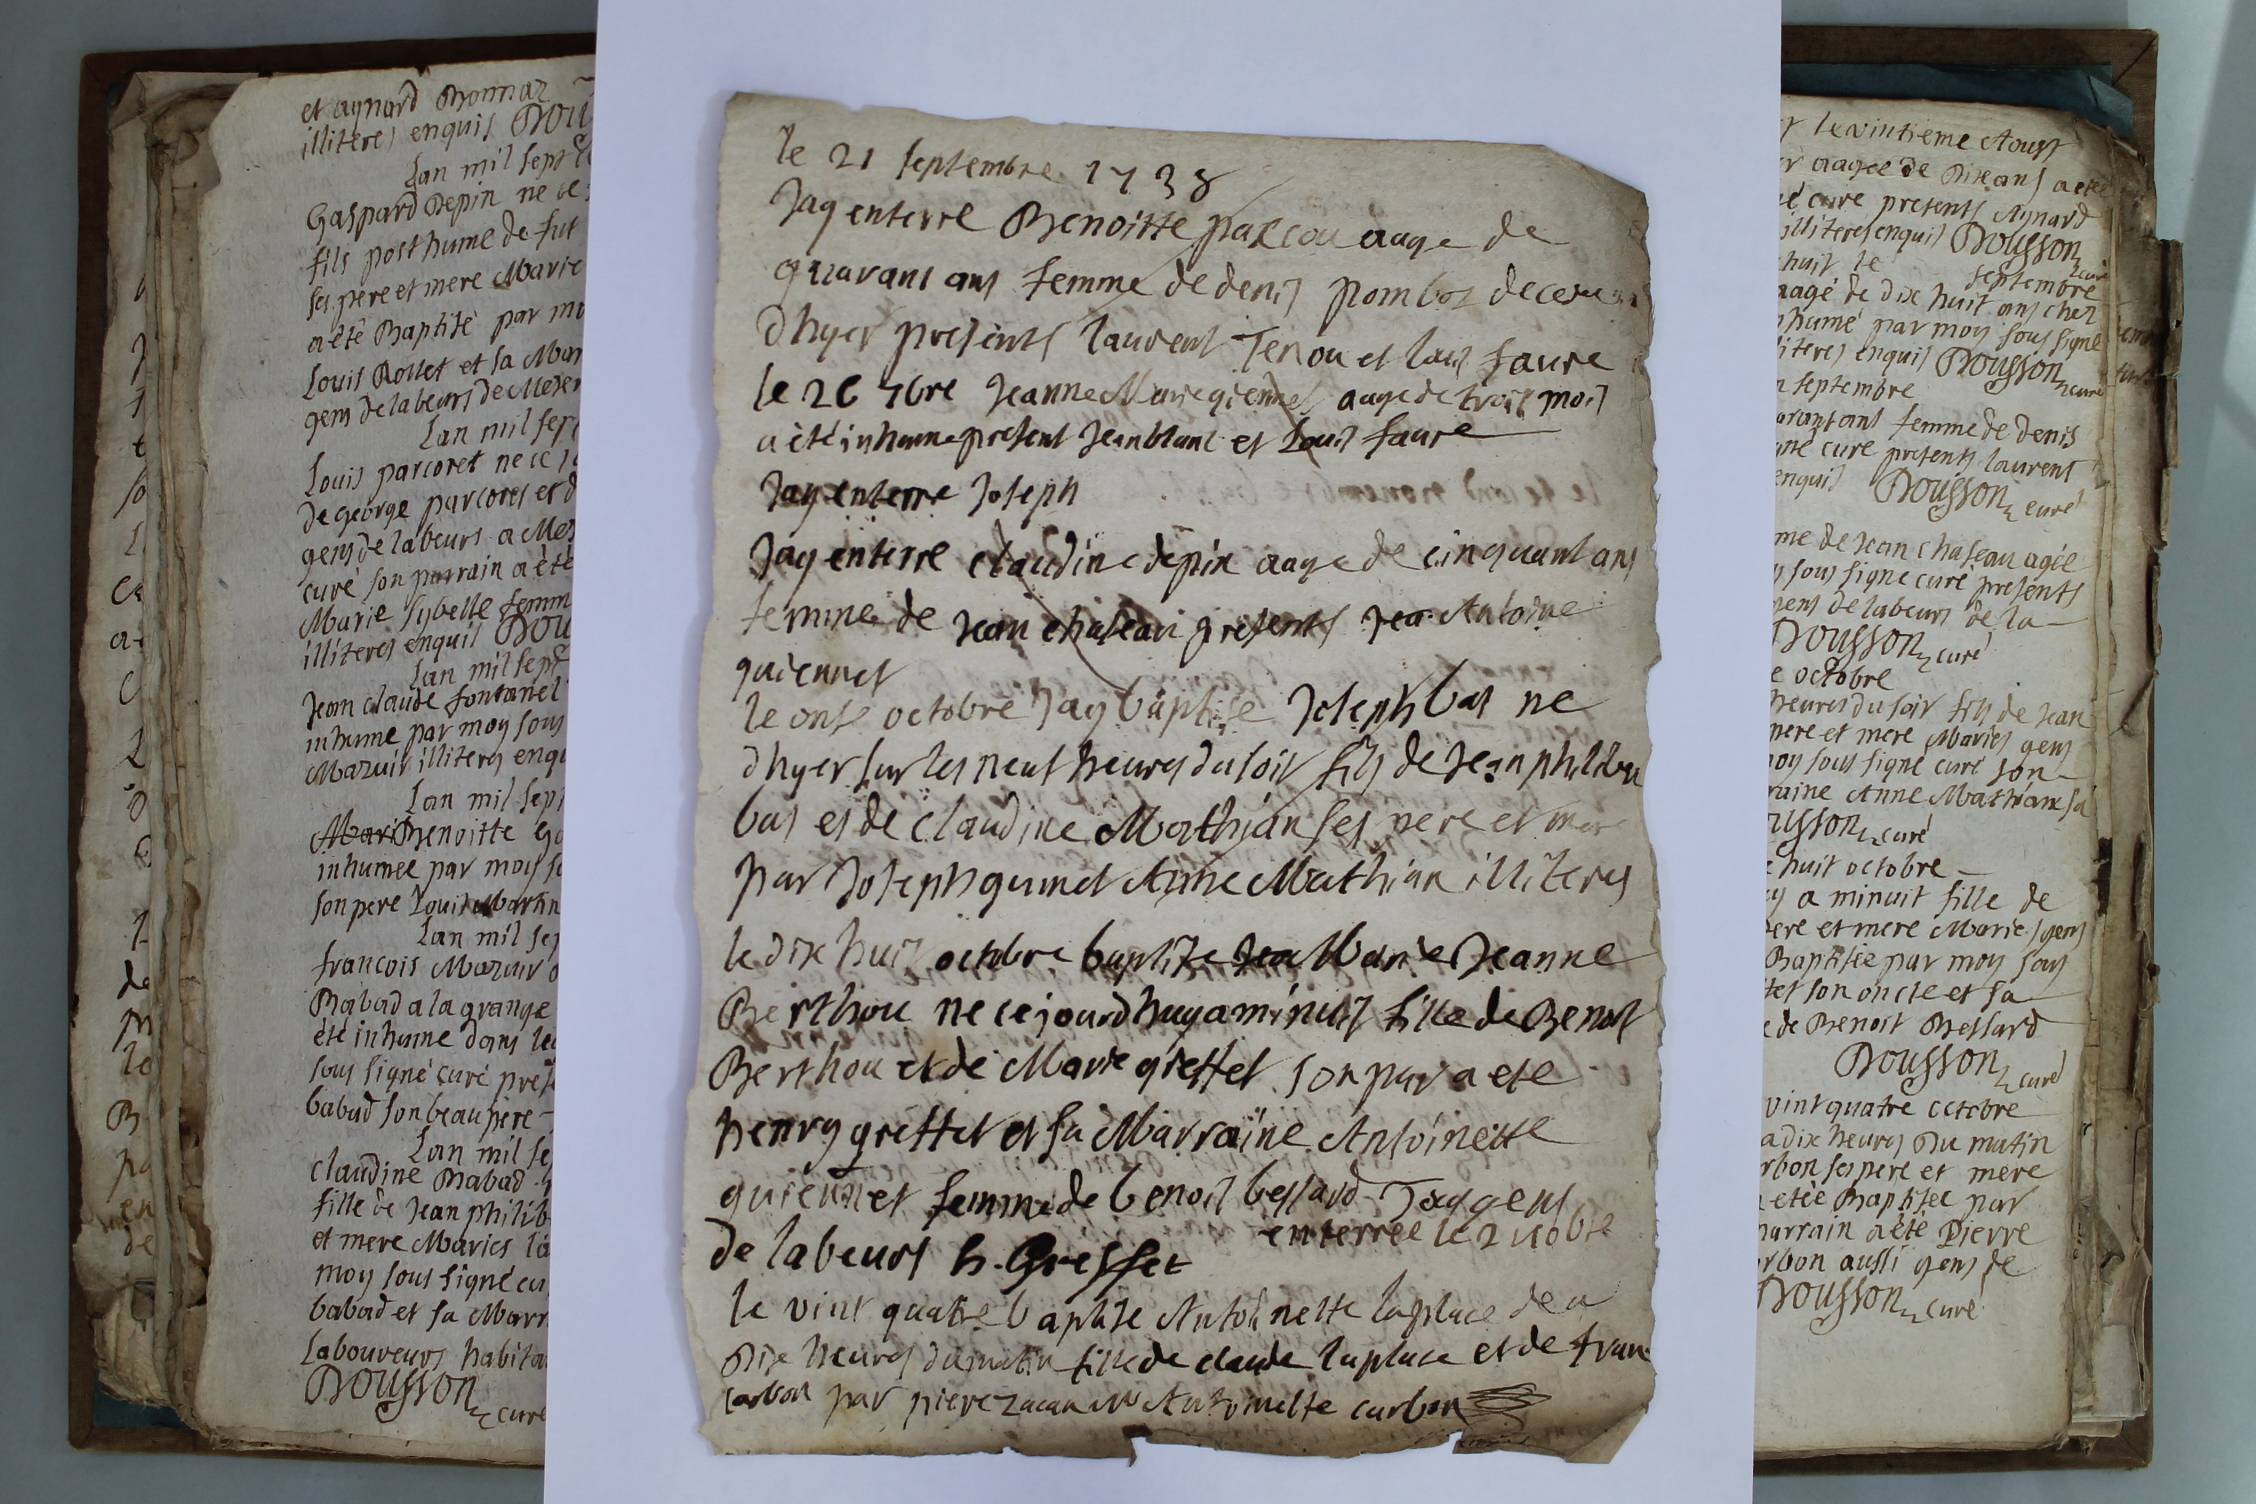 et aynard Bonnaz
illiteres enquis
Lan mil sept
Gaspard Depin ne ce
fils posthume de fut
ses pere et mere Marie
a été Baptisé par mo
Louis Rollet et sa Mar
gens de labeurs de Mesen
Lan mil sep
Louis parcoret ne ce jo
de George parcoret et d
gens de labeurs a Mes
curé son parrain a été
Marie sybelle femm
illiteres enquis Dou
Lan mil sept
Jean claude fontanel
inhume par moy sous
Mazuir illiteres enqu
Lan mil sept
Benoitte
inhumee par moy so
son pere Louis Martin
Lan mil sep
francois Mazuir
Babad a la grange
été inhume dans le
sous signé curé pres
babad son beau pere
Lan mil se
claudine Babad
fille de Jean philib
et mere Maries la
moy sous signé cu
babad et sa Marr
Laboureurs habita
Dousson curé
le 21 septembre 1738
Jay enterre Benoitte parcou aage de
quarant ans femme de denis pombos de
dhyer presents laurent Tenou et louis faure
le 26 7bre Jeanne Marie giennet aage de trois mois
a été inhume present Jean blanc et Louis faure
Jay enterre Joseph
Jay enterre claudine depin aage de cinquant ans
femme de Jean chaseau presents Jea Antoine
guiennet
le onse octobre Jay baptise Joseph bas ne
dhyer sur les neuf heures du soir fils de Jean philiber
bas et de claudine Mathian ses pere et mere
par Joseph guinet Anne Mathian illiteres
le dix huit octobre baptise Jea Marie Jeanne
Berthou ne ce jourdhuy a minuit fille de Benoit
Berthou et de Marie greffet son par a ete
henry greffet et sa Marraine Antoinette
guiennet femme de benoit bessard Tous gens
enterree le 2 10bre
de labeurs h. Greffet
le vint quatre baptise Antoinette laplace de a
Dix heures du matin fille de claude laplace et de fran
carbon par piere Antoinette carbon
le vintieme Aoust
aagee de Dix ans a eté
é curé presents Aynard
illiteres enquis Dousson curé
huit le septembre
aagé de dix huit ans chez
nhumé par moy sous signé
literes enquis Dousson curé
n septembre
arant ans femme de denis
gné curé presents laurent
enquis Dousson curé
me de Jean chaseau agée
y sous signé curé presents
gens de labeurs de la
Dousson curé
e octobre
heures du soir fils de Jean
pere et mere Maries gens
moy sous signé curé son
raine Anne Mathian sa
ousson curé
e huit octobre
y a minuit fille de
pere et mere Maries gens
Baptisée par moy sous
tet son oncle et sa
e de Benoit Bessard
Dousson curé
vint quatre octobre
a dix heures du matin
rbon ses pere et mere
a etée Baptisée par
parrain a été Pierre
rbon aussi gens de
Dousson curé